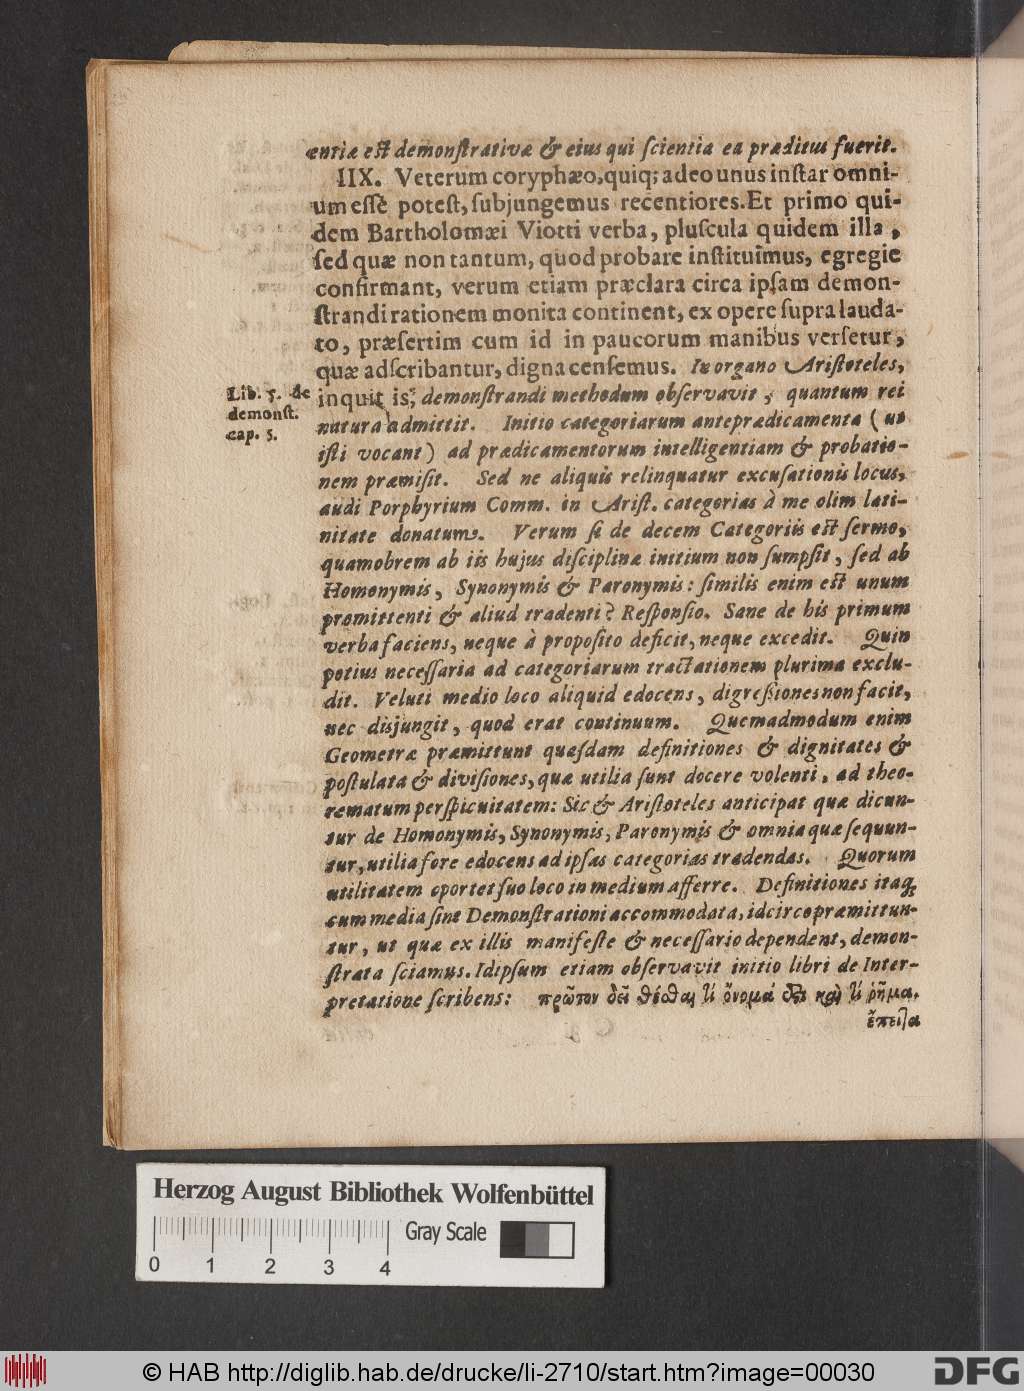 entiæ est demonstrativæ & eius qui ſcientia ea præditus fuerit.
IIX. Veterum coryphæo, quiq; adeo unus inſtar omni-
um eſſe poteſt, ſubjungemus recentiores. Et primo qui-
dem Bartholomæi Viotti verba, pluſcula quidem illa,
ſed quæ non tantum, quod probare inſtituimus, egregie
confirmant, verum etiam præclara circa ipſam demon-
ſtrandi rationem monita continent, ex opere ſupra lauda-
to, præſertim cum id in paucorum manibus verſetur,
quæ adſcribantur, digna cenſemus. In organo Ariſtoteles,
Lib. 5. de
demonſt.
cap. 5.
inquit is, demonſtrandi methodum obſervavit, quantum rei
natura admittit. Initio categoriarum antepræedicamenta (ut
iſti vocant) ad prædicamentorum intelligentiam & probatio-
nem præmiſit. Sed ne aliquis relinquatur excuſationis locus,
audi Porphyrium Comm. in Ariſt. categorias à me olim lati-
nitate donatum. Verum ſi de decem Categoriis est ſermo,
quamobrem ab iis hujus diſciplinæ initium non ſumpſit, ſed ab
Homonymis, Synonymis & Paronymis: ſimilis enim est unum
promittenti & aliud tradenti? Reſponſio. Sane de his primum
verba faciens, neque à propoſito deficit, neque excedit. Quin
potius neceſſaria ad categoriarum tractationem plurima exclu-
dit. Veluti medio loco aliquid edocens, digreſsiones non facit,
nec disjungit, quod erat continuum. Quemadmodum enim
Geometræ præmittunt quaſdam definitiones & dignitates &
poſtulata & diviſiones, quæ utilia ſunt docere volenti, ad theo-
rematum perſpicuitatem: Sic & Ariſtoteles anticipat quæ dicun-
tur de Homonymis, Synonymis, Paronymis & omnia quæ ſequun-
tur, utilia fore edocens ad ipſas categorias tradendas. Quorum
utilitatem oportet ſuo loco in medium afferre. Definitiones itaq;
cum media ſint Demonſtrationi accommodata, idcirco præmittun-
tur, ut quæ ex illis manifeſte & neceſſario dependent, demon-
ſtrata ſciamus. Idipſum etiam obſervavit initio libri de Inter-
pretatione ſcribens: πρῶτον δεῖ θέσθαι τί ὄνομά ἐστι καὶ τί ῥῆμα.
ἔπειτα
Herzog August Bibliothek Wolfenbüttel
Gray Scale
0 1 2 3 4
© HAB http://diglib.hab.de/drucke/li-2710/start.htm?image=00030
DFG